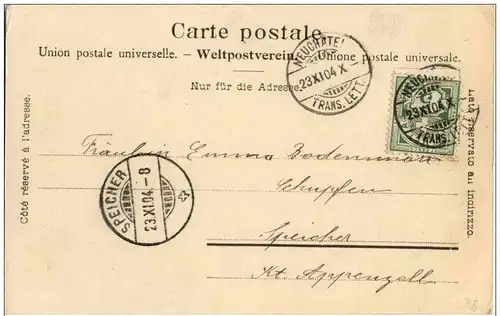 Carte postale.
Union postale universelle. – Weltpostverein. – Unione postale universale.
Nur für die Adresse.
Côté réservé à l'adresse.
Lato riservato au indirizzo.
NEUCHATEL
23.XI.04 X
TRANS. LETT.
NEUCHATEL
23.XI.04 X
TRANS. LETT.
Fräulein Emma
Schupfen
Speicher
Kt. Appenzell.
SPEICHER
23.XI.04.-8